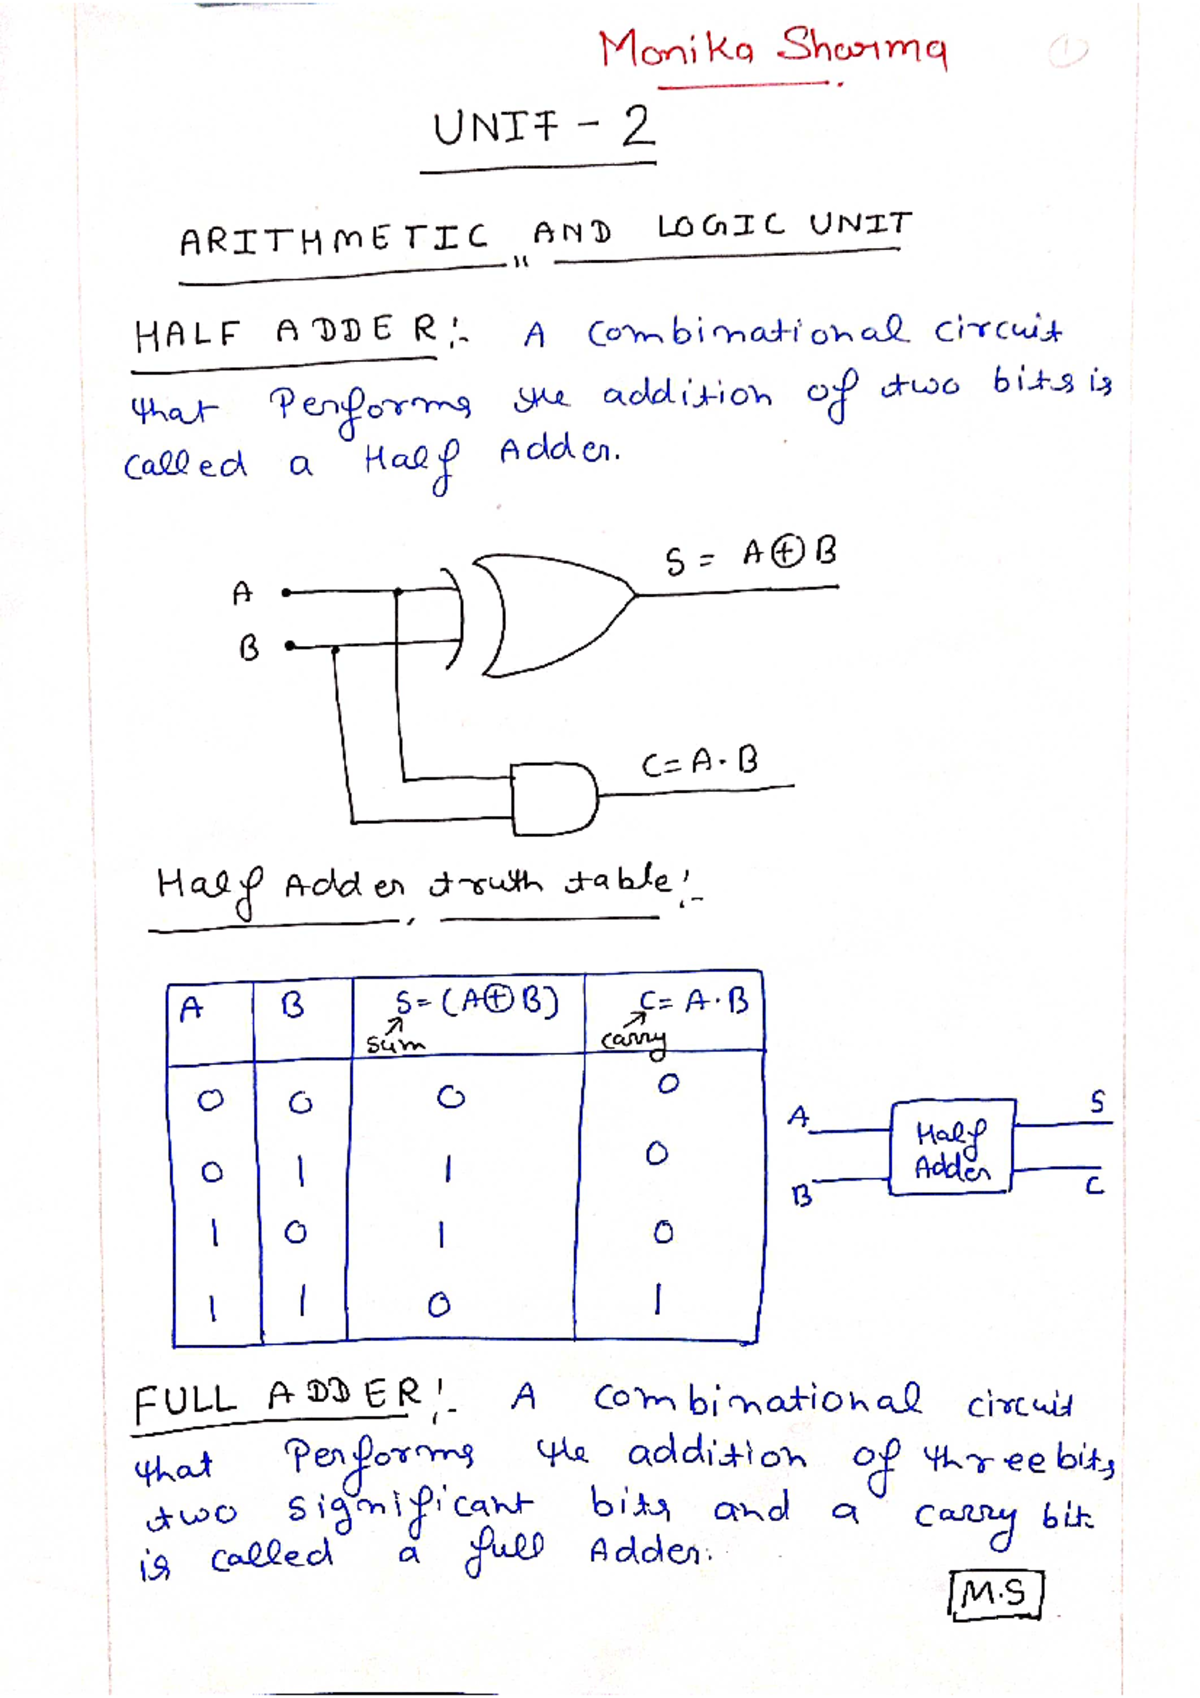 Monika Sharma
1
UNIT - 2
ARITHMETIC AND LOGIC UNIT
HALF ADDER:- A Combinational circuit
that Performs the addition of two bits is
called a Half Adder.
S = A⊕B
A
B
C = A·B
Half Adder truth table:-
A B S = (A⊕B) C = A·B
sum carry
0 0 0 0
0 1 1 0
1 0 1 0
1 1 0 1
A S
Half
Adder
B C
FULL ADDER:- A Combinational circuit
that Performs the addition of three bits,
two significant bits and a carry bit
is called a full Adder.
M.S